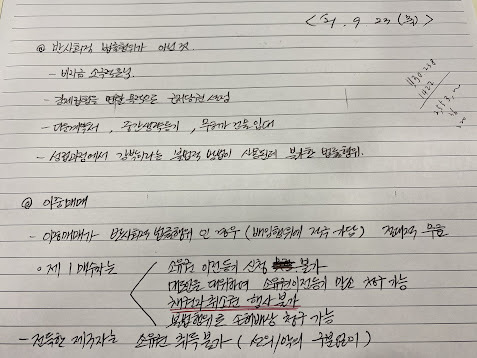 < 21. 9. 23 (목) >
@ 반사회적 법률행위가 아닌 것.
- 비자금 소극은닉.
- 강제집행을 면할 목적으로 근저당권 설정
- 다운계약서, 중간생략등기, 무허가 건물 임대
- 성립과정에서 강박이라는 불법적 방법이 사용된데 불과한 법률행위.
@ 이중매매
- 이중매매가 반사회적 법률행위 인 경우 (배임행위에 적극 가담) 절대적 무효
○ 제 1 매수자는
소유권 이전등기 신청 불가
매도인을 대위하여 소유권이전등기 말소 청구 가능
채권자취소권 행사 불가
불법행위로 손해배상 청구 가능
- 전득한 제3자는 소유권 취득 불가 ( 선의/악의 구분없이 )